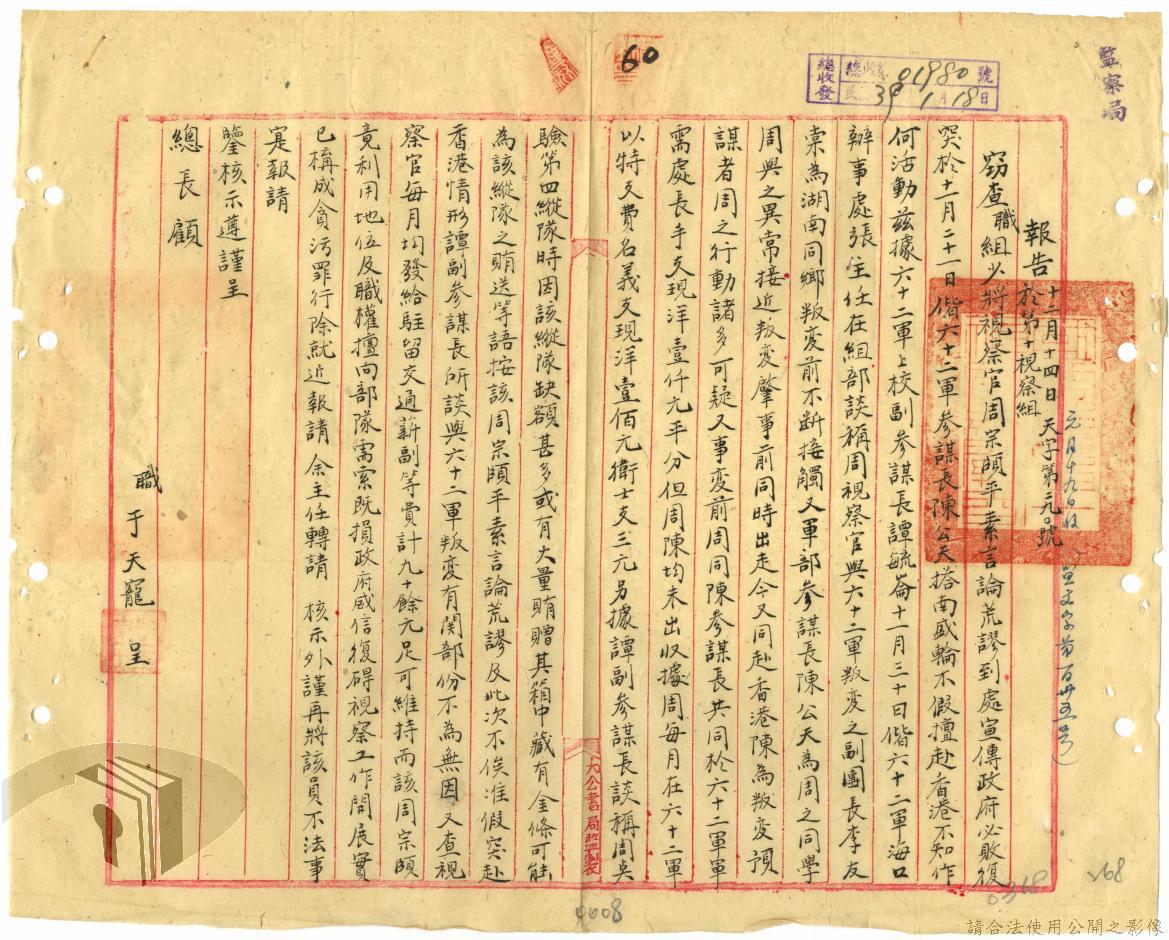 監察局
總收發
總收發 01980 號
民 39 1月18日
60
報告 十二月十四日 天字第元號
於第十視察組
元月十九日收
窃查職組少將視察官周宗頤平素言論荒謬到處宣傳政府必敗復
突於十一月二十一日偕六十二軍參謀長陳公天搭南盛輪不假擅赴香港不知作
何活動茲據六十二軍上校副參謀長譚毓崙十一月三十日偕六十二軍海口
辦事處張主任在組部談稱周視察官與六十二軍叛变之副團長李友
棠為湖南同鄉叛变前不断接觸又軍部參謀長陳公天為周之同學
周與之異常接近叛变肇事前同時出走今又同赴香港陳為叛变預
謀者周之行動諸多可疑又事变前周同陳參謀長共同於六十二軍軍
需處長手支現洋壹仟元平分但周陳均未出收據周每月在六十二軍
以特支費名義支現洋壹佰元衛士支三元另據譚副參謀長談稱周奌
驗第四縱隊時因該縱隊缺額甚多或有大量賄贈其箱中藏有金條可能
為該縱隊之賄送等語按該周宗頤平素言論荒謬及此次不俟准假突赴
香港情形譚副參謀長所談與六十二軍叛変有関部份不為無因又查視
察官每月均發給駐留交通薪副等費計九十餘元足可維持而該周宗頤
竟利用地位及職權擅向部隊需索既損政府威信復碍視察工作開展實
已構成貪污罪行除就近報請余主任轉請 核示外謹再將該員不法事
寔報請
鑒核示遵謹呈
總長顧
職于天寵呈
大公書局監製
0008
0318
168
請合法使用公開之影像